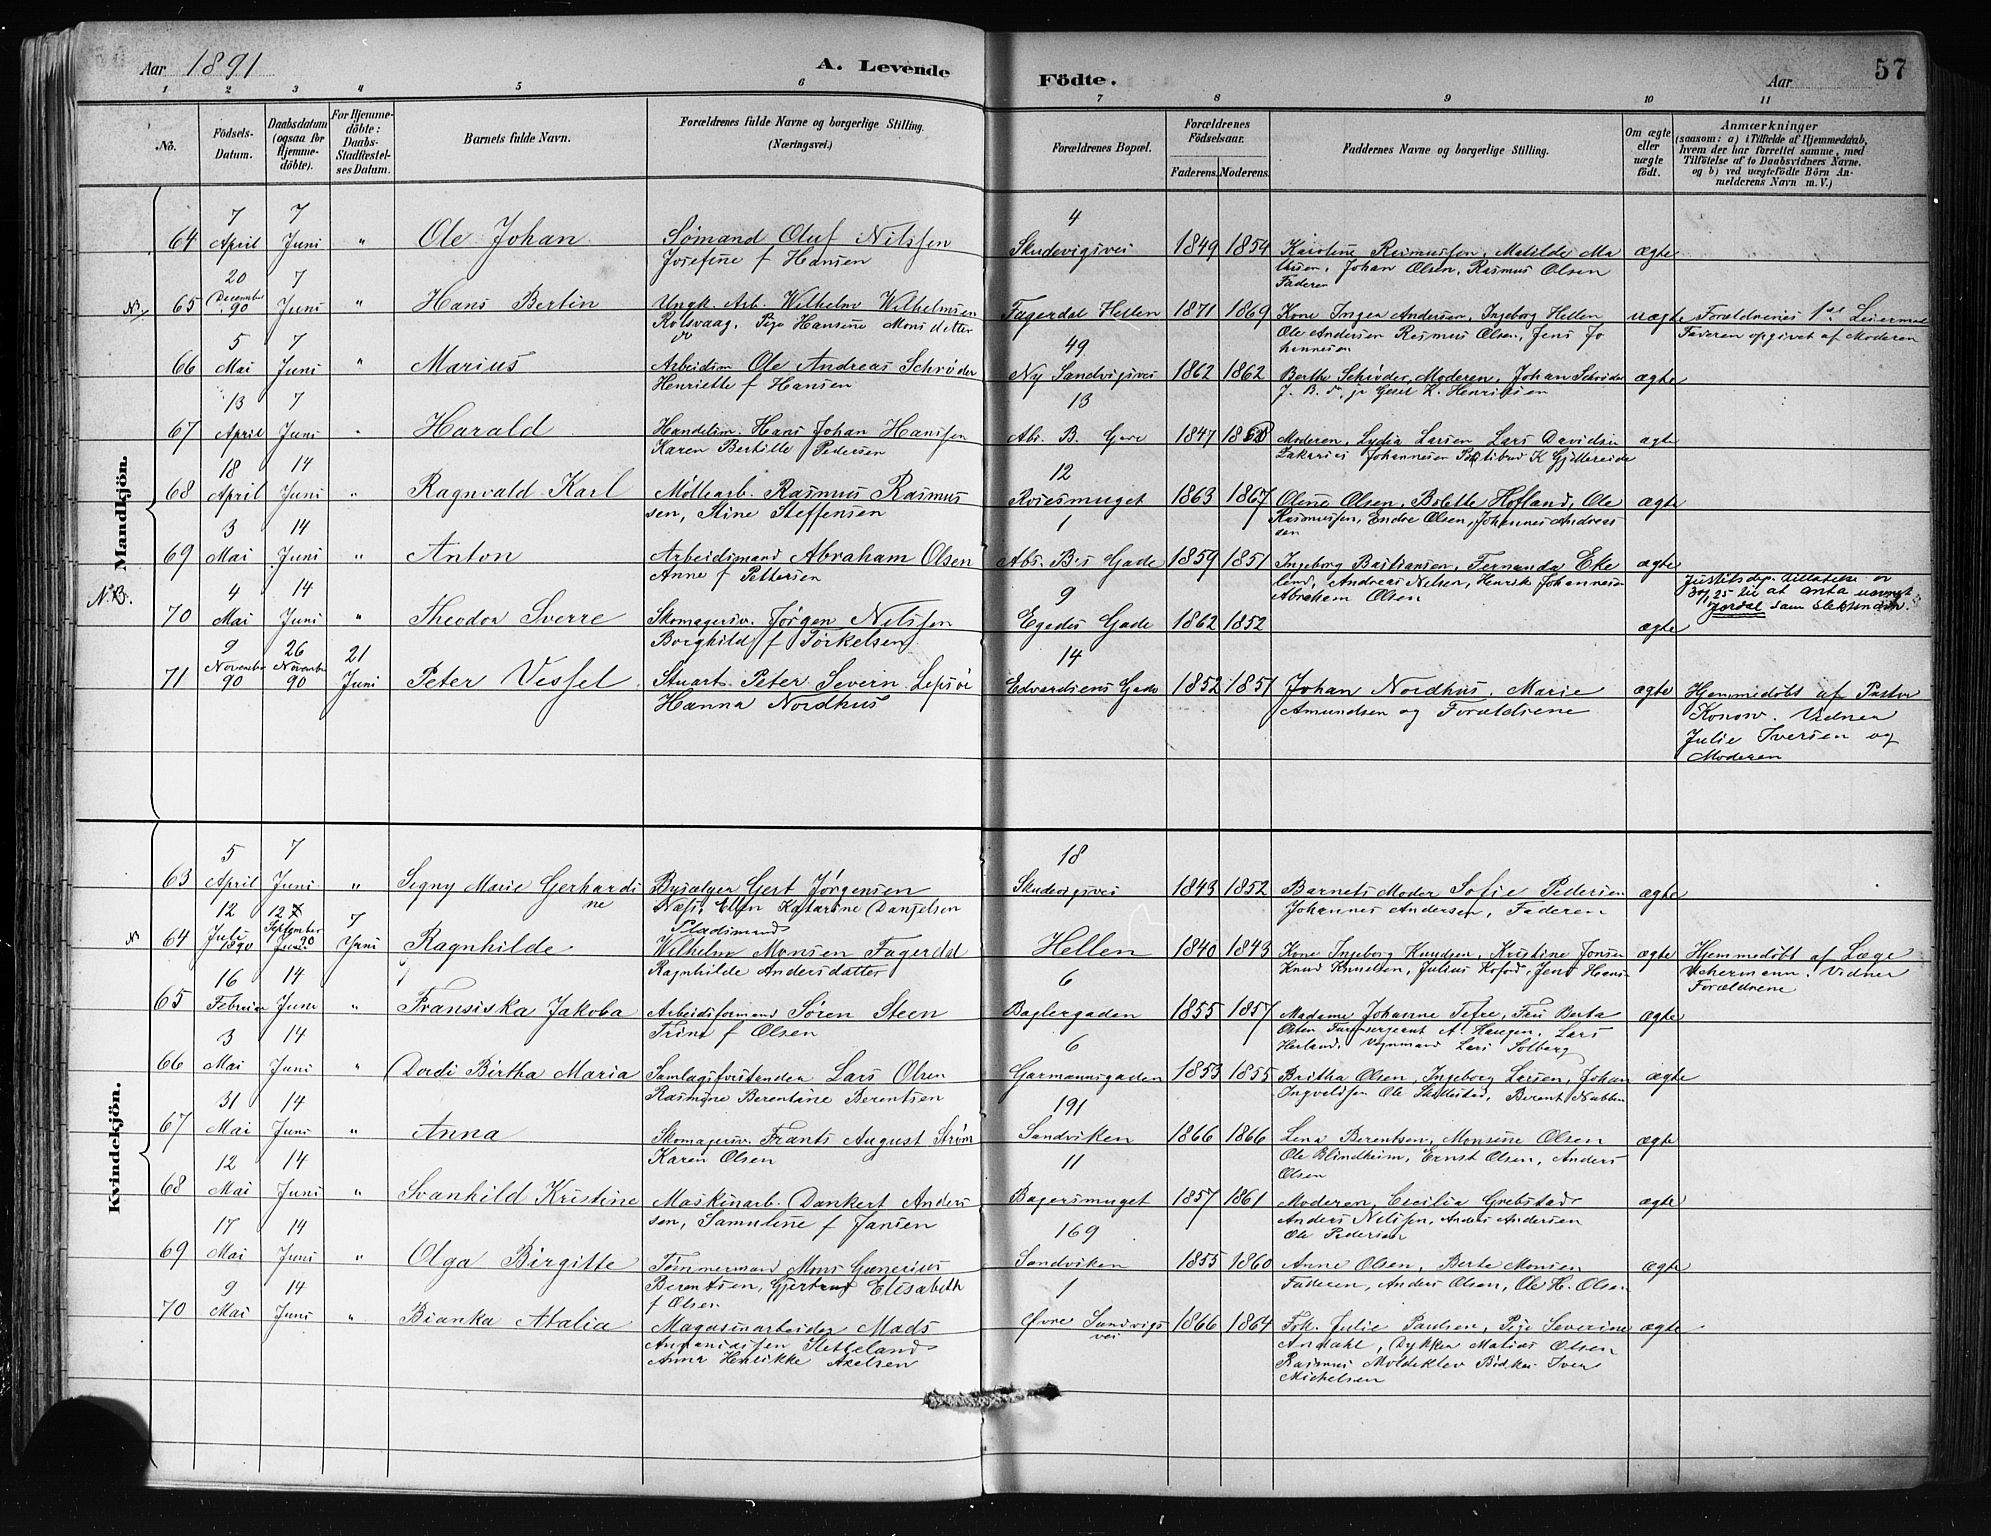 Aar 1891
A. Levende
Födte.
Aar
57
1 2 3 4 5 6 7 8 9 10 11
No.
Födsels-Datum.
Daabsdatum (ogsaa for Hjemme-döbte).
For Hjemme-döbte: Daabs-Stadfæstel-ses Datum.
Barnets fulde Navn.
Forældrenes fulde Navne og borgerlige Stilling.
(Næringsvei.)
Forældrenes Bopæl.
Forældrenes Födselsaar.
Faderens. Moderens.
Faddernes Navne og borgerlige Stilling.
Om ægte eller uægte födt.
Anmærkninger
(saasom: a) i Tilfælde af Hjemmedaab,
hvem der har forrettet samme, med
Tilföielse af to Daabsvidners Navne.
og b) ved uægtefödte Börn An-
melderens Navn m. V.)
Mandkjön.
64 7 April 7 Juni " Ole Johan Sømand Oluf Nilssen 4 Skudevigsvei 1849 1854 Karoline Rasmussen, Matilde Ma ægte
Josefine f Hansen
thisen, Johan Olsen, Rasmus Olsen
Faderen
65 20 December 90 7 Juni " Hans Bertin Ungk. Arb. Wilhelm Wilhelmsen Fagerdal Hellen 1871 1869 Kone Inger Andersen, Ingeborg Hellen uægte Forældrenes 1ste Leiermaal
Rolsvaag, Pige Hansine Monsdatter
Ole Andersen Rasmus Olsen, Jens Jo
hannesen
Faderen opgivet af Moderen
66 5 Mai 7 Juni " Marius Arbeidsm Ole Andreas Schrøder 49 Ny Sandvigsvei 1862 1862 Berthe Schrøder, Moderen, Johan Schrøder ægte
Henriette f Hansen
K. Henriksen
67 13 April 7 Juni " Harald Handelsm. Hans Johan Hanssen 13 Abs. B. Gade 1847 1850 Moderen, Lydia Larsen Lars Davidsen ægte
Karen Bertille Pedersen
Zakarias Johannesen
68 18 April 14 Juni " Ragnvald Karl Møllearb. Rasmus Rasmus 12 Rosesmuget 1863 1867 Oline Olsen, Bolette Hofland, Ole ægte
sen, Stine Steffensen
Rasmussen, Endre Olsen, Johannes Andreas
sen
69 3 Mai 14 Juni " Anton Arbeidsmand Abraham Olsen 1 Abs. B's Gade 1859 1851 Ingeborg Bastiansen, Fernanda Eke ægte
Anne f Pettersen
land, Andreas Nelsen, Henrik Johannesen
Abraham Olsen
N.B.
70 4 Mai 14 Juni " Theodor Sverre Skomagersv. Jørgen Nilssen 9 Egedes Gade 1862 1852 ægte
Borghild f Torkelsen
Justitsdep. tillatelse av
30/1 25 til at anta navnet
som slektsnavn.
71 9 November 90 26 November 90 21 Juni Peter Vessel Stuart Peter Severin Lepsøe 14 Edvardsens Gade 1852 1857 Johan Nordhus, Marie ægte Hjemmedøbt af Pastor
Hanna Nordhus
Amundsen og Forældrene
Konow. Vidner
Julie Iversen og
Moderen
Kvindekjön.
63 5 April 7 Juni " Signy Marie Gerhardi Bysælger Gert Jørgensen 18 Skudevigsvei 1843 1852 Barnets Moder Sofie Pedersen ægte
ne
Næss, Ellen Katarine Danielsen
Johannes Andersen, Faderen
64 12 Juli 1890 12 September 90 7 Juni Ragnhilde Pladsmand Wilhelm Monsen Fagerdal Hellen 1840 1843 Kone Ingeborg Knudsen, Kristine Jonsen ægte Hjemmedøbt af Læge
Ragnhilde Andersdatter
Knud Knudsen, Julius Kofod, Jens Hansen
Vidner
Forældrene
65 16 Februar 14 Juni " Fransiska Jakoba Arbeidsformand Søren Steen 6 Baglergaden 1855 1857 Madame Johanne Tefre, Fru Berta ægte
Trine f Olsen
Olsen sergeant A. Haugen, Lars
Herland, Vognmand Lars Solberg
66 3 Mai 14 Juni " Dordi Birtha Maria Samlagsforstander Lars Olsen 6 Garmannsgaden 1853 1855 Britha Olsen, Ingeborg Larsen, Johan ægte
Rasmine Berentine Berentsen
Ingvaldsen Ole Berent Nubben
67 31 Mai 14 Juni " Anna Skomagersv. Frants August Strøm 191 Sandviken 1866 1866 Lena Berentsen, Monsine Olsen ægte
Karen Olsen
Ole Blindheim, Ernst Olsen, Anders
Olsen
68 12 Mai 14 Juni " Svanhild Kristine Maskinarb. Dankert Anders 11 Bagersmuget 1857 1861 Moderen, Cecilia Grebstad ægte
sen, Samuline f Jansen
Anders Nilssen, Anders Andersen
Ole Pedersen
69 17 Mai 14 Juni " Olga Birgitte Tømmermand Mons Gunerius 169 Sandviken 1855 1860 Anne Olsen, Berte Monsen ægte
Berentsen, Gjertrud Elisabeth
f Olsen
Faderen, Anders Olsen, Ole H. Olsen
70 9 Mai 14 Juni " Bianka Atalia Magasinarbeider Mads 1 Øvre Sandvigs 1866 1864 Frk. Julie Paulsen, Pige Severine ægte
vei
Ananiassen Sletteland
Anna Henrikke Axelsen
Andahl, Dykker Matias Olsen
Rasmus Moldeklev Bødker Iver
Michelsen